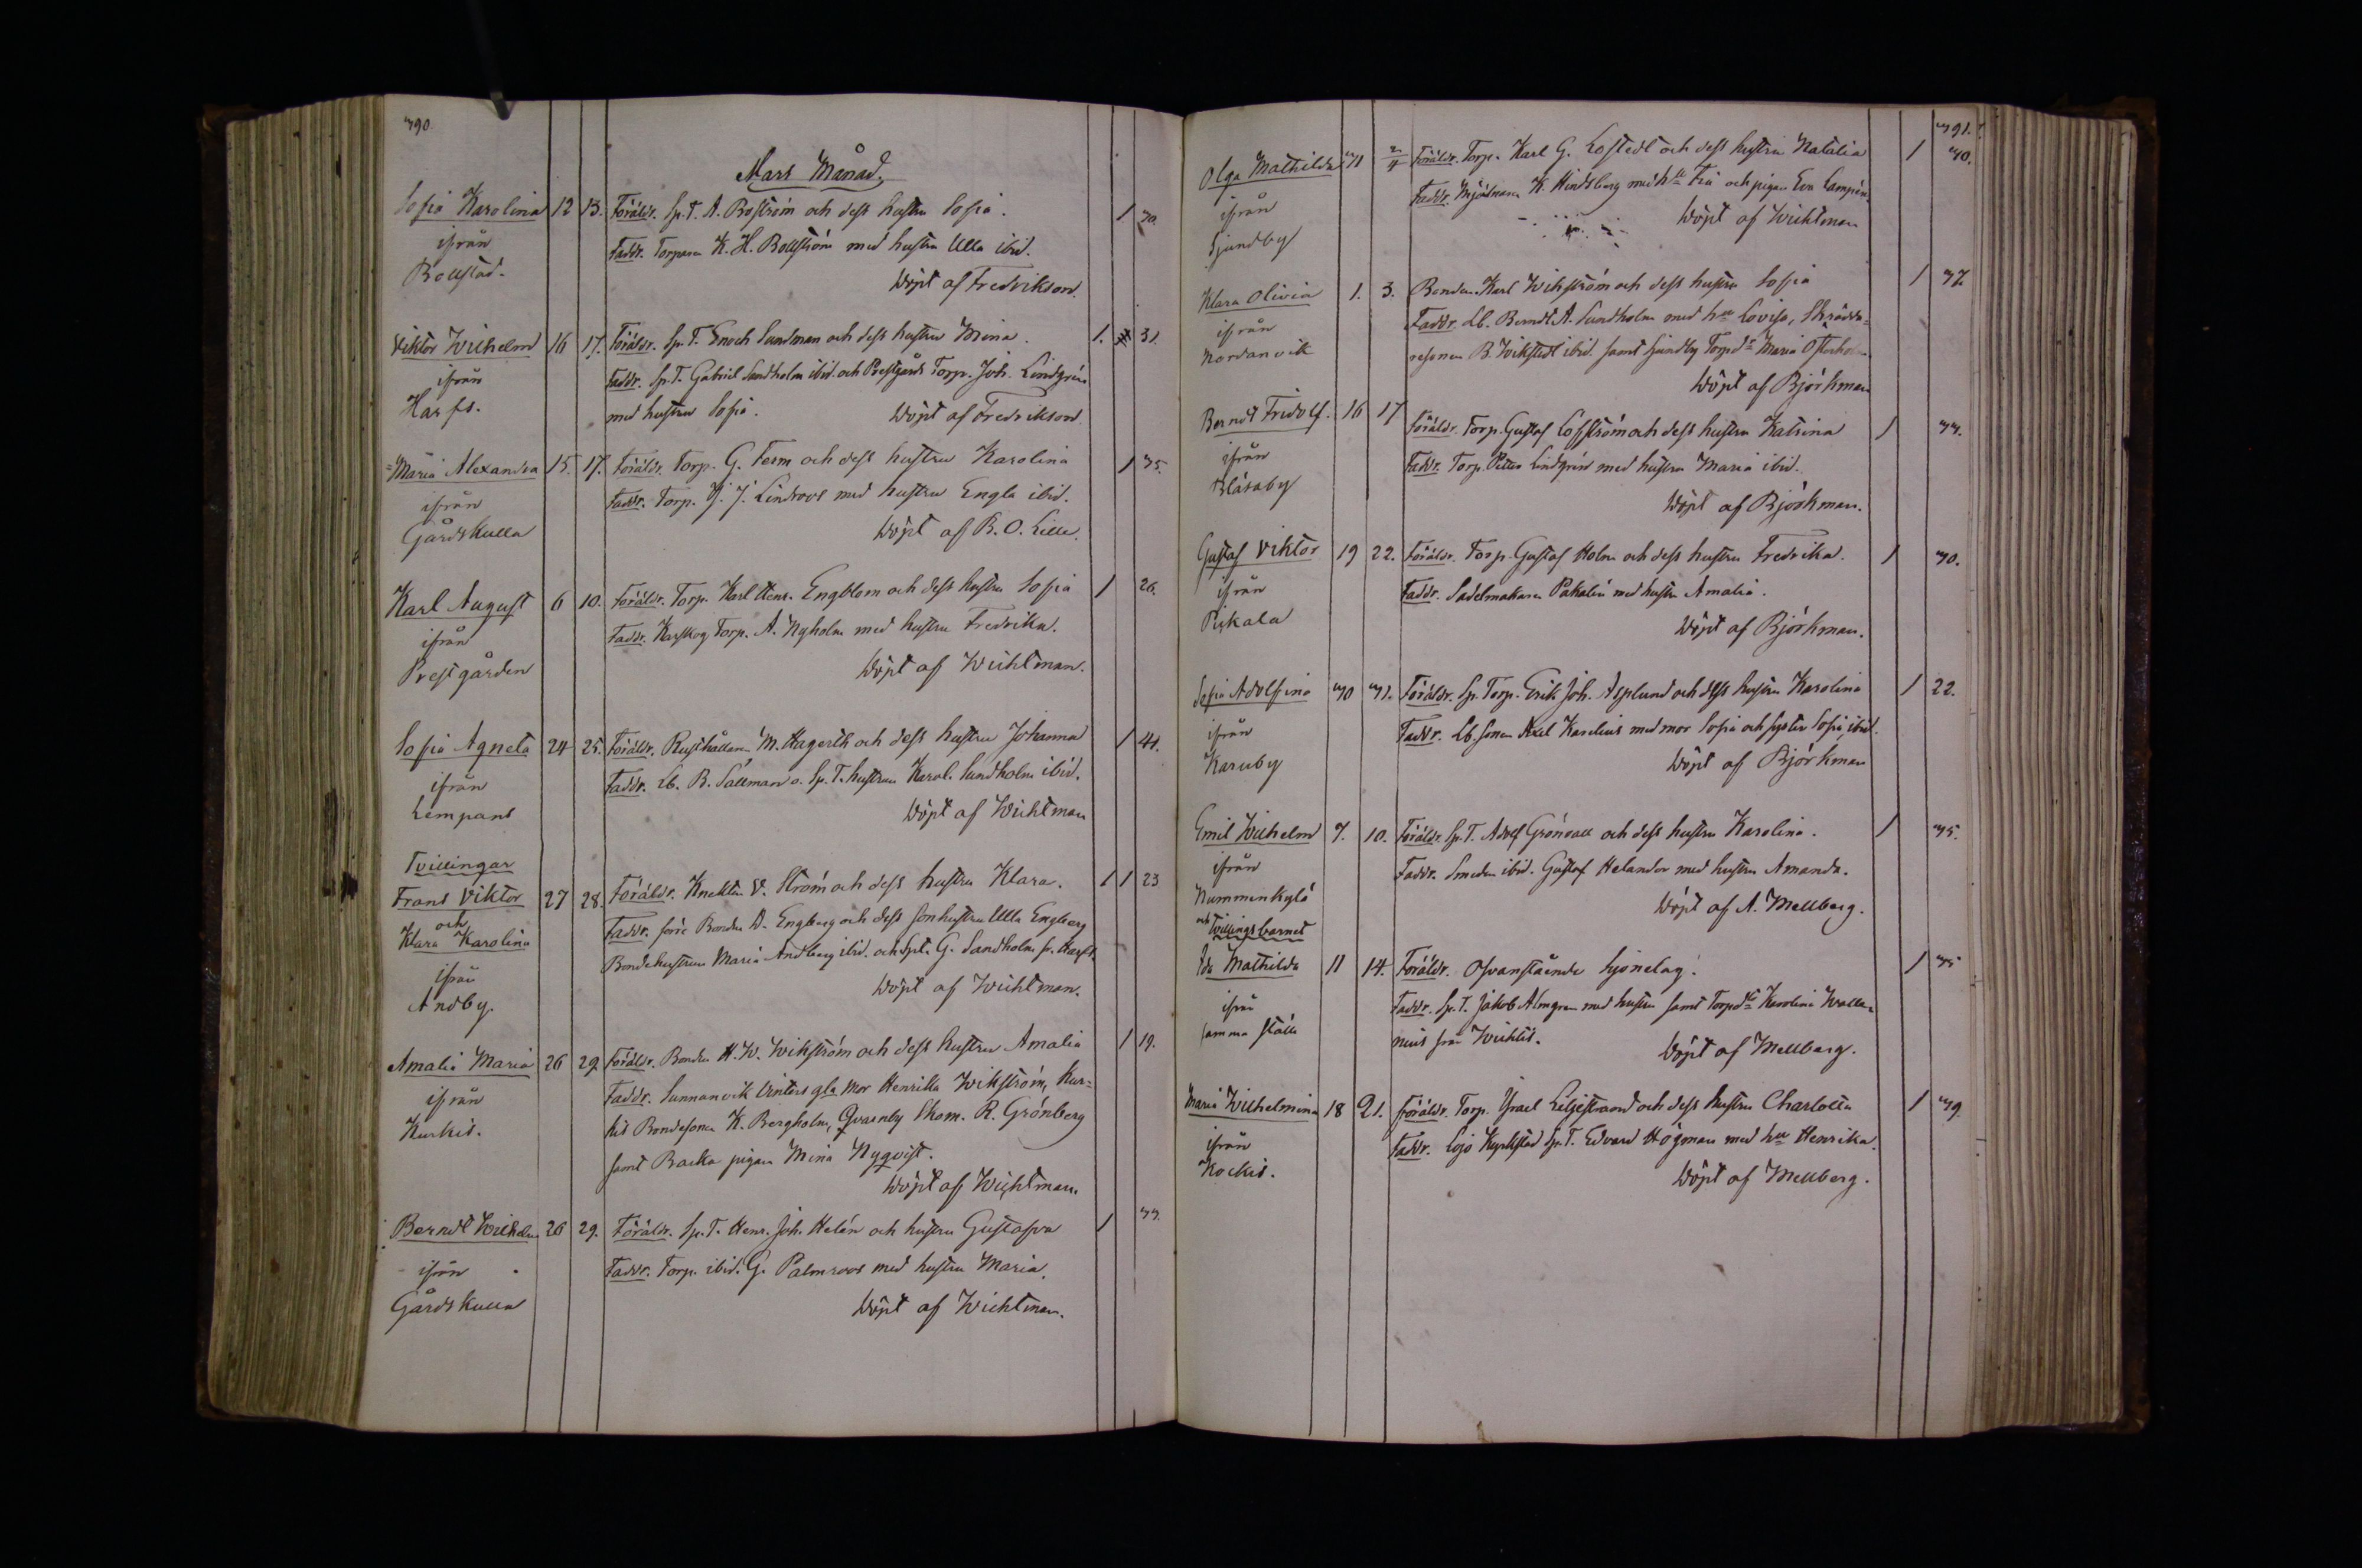 390
Mars Månad.
Sofia Karolina 12 13. Föräldr. Sp. T. A. Boström och dess hustru Sofia. 1 30.
ifrån Faddr. Torparen K. H. Bollström med hustru Ulla ibid.
Bollstad. Döpt af Fredrikson.
Viktor Wilhelm 16 17. Föräldr. Sp. T. Enoch Sundman och dess hustru Mina. 1. 31.
ifrån Faddr. Sp. T. Gabriel Sundholm ibid. och Prestgårds Torp. Joh. Lindgrén
Harfs. med hustru Sofia. Döpt af Fredrikson
Maria Alexandra 15. 17. Föräldr. Torp. G. Term och dess hustru Karolina 1 35.
ifrån Faddr. Torp. J. J. Lindroos med hustru Engla ibid.
Gårdskulla Döpt af B. O. Lille.
Karl August 6 10. Föräldr. Torp. Karl Henr. Engblom och dess hustru Sofia 1 26.
ifrån Faddr. Karskog Torp. A. Nyholm med hustru Fredrika.
Prestgården Döpt af Wichtman.
Sofia Agneta 24 25. Föräldr. Rusthållaren M. Hagerth och dess hustru Johanna 1 41.
ifrån Faddr. Lb. B. Sallman o. Sp. T. hustrun Karol. Sundholm ibid.
Lempans Döpt af Wichtman
Tvillingar
Frans Viktor 27 28. Föräldr. Knekten V. Ström och dess hustru Klara. 1 1 23
och Faddr. förre Bonden A. Engberg och dess sonhustru Ulla Engberg
Klara Karolina Bondehustrun Maria Andberg ibid. och Spt. G. Sandholm fr. Harfs.
ifrån Döpt af Wichtman.
Andby.
Amalia Maria 26 29. Föräldr. Bonden H. W. Wikström och dess hustru Amalia 1 19.
ifrån Faddr. Sunnanvik Vinters gla Mor Henrika Wikström, Kur=
Kurkis. kis Bondesonen K. Bergholm, Qvarnby Skom. R. Grönberg
samt Backa pigan Mina Nyqvist.
Döpt af Wichtman.
Berndt Wilhelm 26 29. Föräldr. Sp. T. Henr. Joh. Helén och hustru Gustafva 1 33.
ifrån Faddr. Torp. ibid. G. Palmroos med hustru Maria.
Gårdskulla Döpt af Wichtman.
391.
Olga Mathilda 31 2/4 Föräldr. Torp. Karl G. Lostedt och dess hustru Natalia 1 30.
ifrån Faddr. Mjölnaren K. Hindsberg med hu Fia och pigan Eva Lampén.
Sjundby Döpt af Wichtman
Klara Olivia 1. 3. Bonden Karl Wikström och dess hustru Sofia 1 37.
ifrån Faddr. Lb. Berndt A. Sundholm med hu Lovisa, Skrädda=
Nordanvik resonen B. Wikstedt ibid. samt Sjundby Torpdr Maria Österholm
Döpt af Björkman
Berndt Fridolf. 16 17 Föräldr. Torp. Gustaf Löfström och dess hustru Katrina 1 33.
ifrån Faddr. Torp. Petter Lindgrén med hustru Maria ibid.
Blåsaby Döpt af Björkman.
Gustaf Viktor 19 22. Föräldr. Torp. Gustaf Holm och dess hustru Fredrika. 1 30.
ifrån Faddr. Sadelmakaren Pakalin med hustru Amalia.
Pickala Döpt af Björkman.
Sofia Adolfina 30 31. Föräldr. Sp. Torp. Erik Joh. Asplund och dess hustru Karolina 1 22.
ifrån Faddr. Lb. sonen Axel Karelius med mor Sofia och syster Sofia, ibid.
Karuby Döpt af Björkman
Emil Wilhelm 7. 10. Föräldr. Sp. T. Adolf Grönvall och dess hustru Karolina. 1 35.
ifrån Faddr. Smeden ibid. Gustaf Helander med hustru Amanda.
Nummenkylä Döpt af A. Mellberg.
och Tvillingsbarnet
Ida Mathilda 11 14. Föräldr. Ofvanstående hjonelag. 1 35
ifrån Faddr. Sp. T. Jakob Almgren med hustru samt Torpdr Karolina Walle=
samma ställe nius från Wichtis. Döpt af Mellberg.
Maria Wilhelmina 18 21. Föräldr. Torp. Israel Liljestrand och dess hustru Charlotta 1 39
ifrån Faddr. Lojo Kyrkstad Sp. T. Edvard Högman med hu Henrika
Kockis. Döpt af Mellberg.